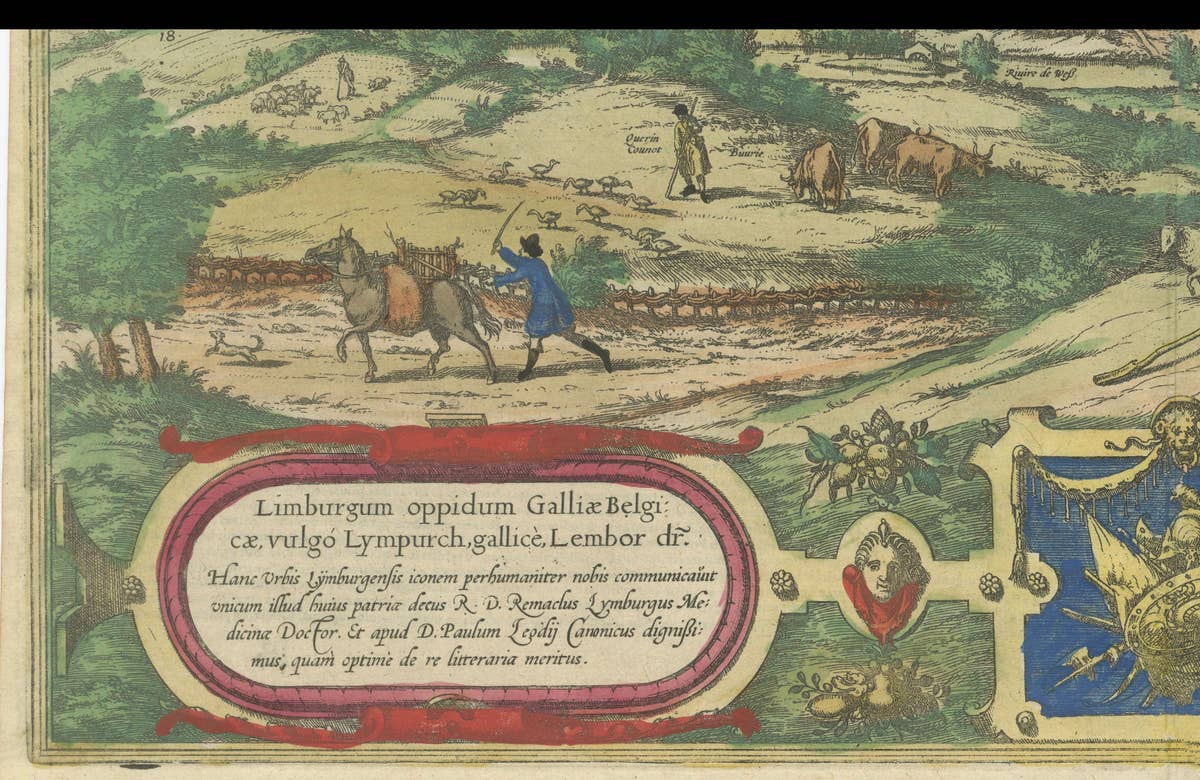 18.
La
Riuire de Weſz
Querin
Counot
Buurie
Limburgum oppidum Galliæ Belgi:
cæ, vulgó Lympurch, gallicè, Lembor dr̃.
Hanc Vrbis Lÿmburgenſis iconem perhumaniter nobis communicaũt
vnicum illud huius patriæ decus R. D. Remaclus Lymburgus Me:
dicinæ Doctor. Et apud D. Paulum Leodij Canonicus digniſſi:
mus, quam optimè de re litteraria meritus.